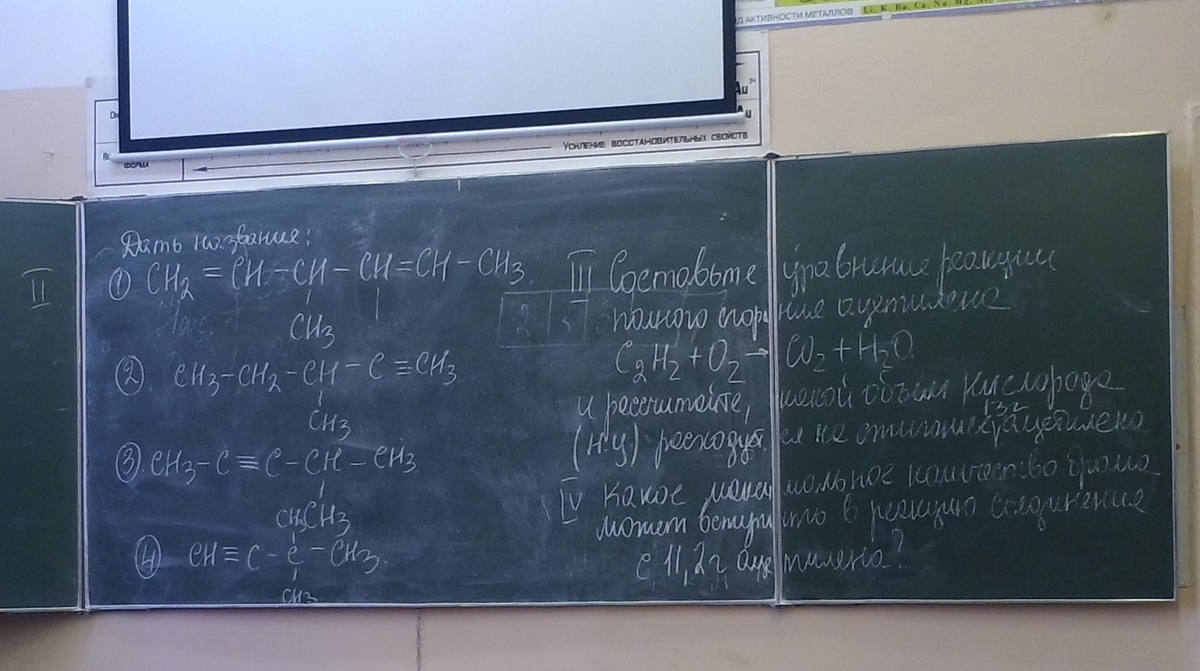 АД АКТИВНОСТИ МЕТАЛЛОВ
Li, K, Ba, Ca, Na, Mg, Al
Au³⁺
Au
УСИЛЕНИЕ ВОССТАНОВИТЕЛЬНЫХ СВОЙСТВ
ФОРМА
II
Дать название:
① CH₂ = CH - CH - CH = CH - CH₃
CH₃
② CH₃ - CH₂ - CH - C ≡ CH₃
CH₃
③ CH₃ - C ≡ C - CH - CH₃
CH₃
CH₃
④ CH ≡ C - C - CH₃
CH₃
III Составьте уравнение реакции
полного сгорания ацетилена
C₂H₂ + O₂ → CO₂ + H₂O
и рассчитайте, какой объём кислорода
(н.у) расходуется на сжигание 13г ацетилена
IV Какое максимальное количество брома
может вступить в реакцию соединения
с 11,2 г ацетилена?